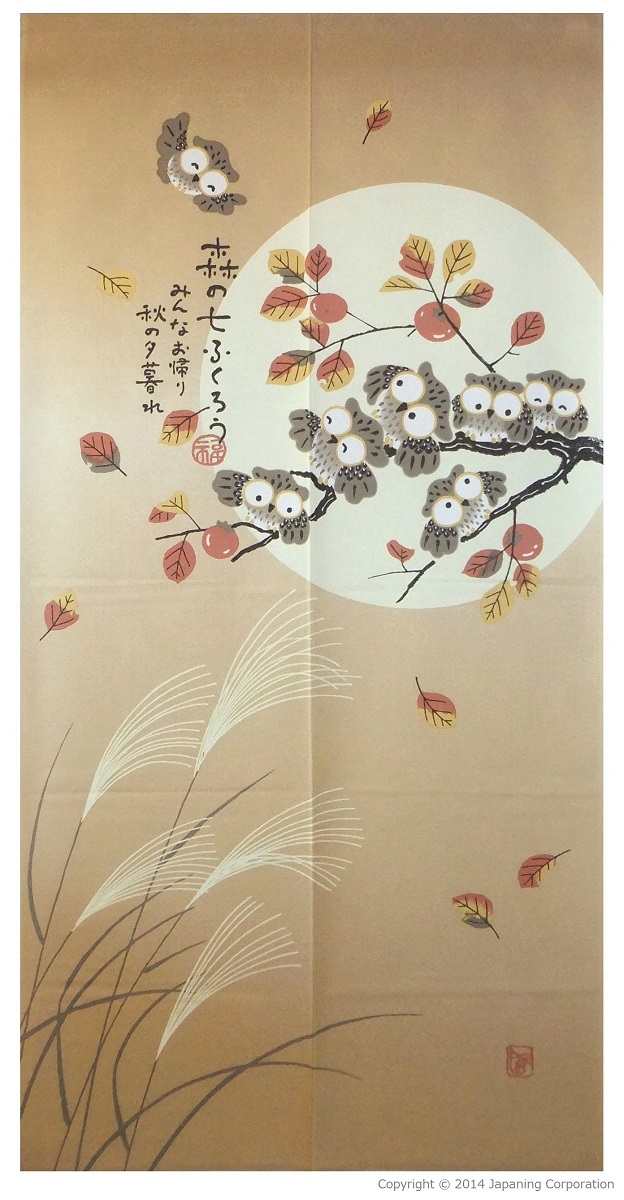 森の七ふくろう
みんなお帰り
秋の夕暮れ
福
Copyright © 2014 Japaning Corporation